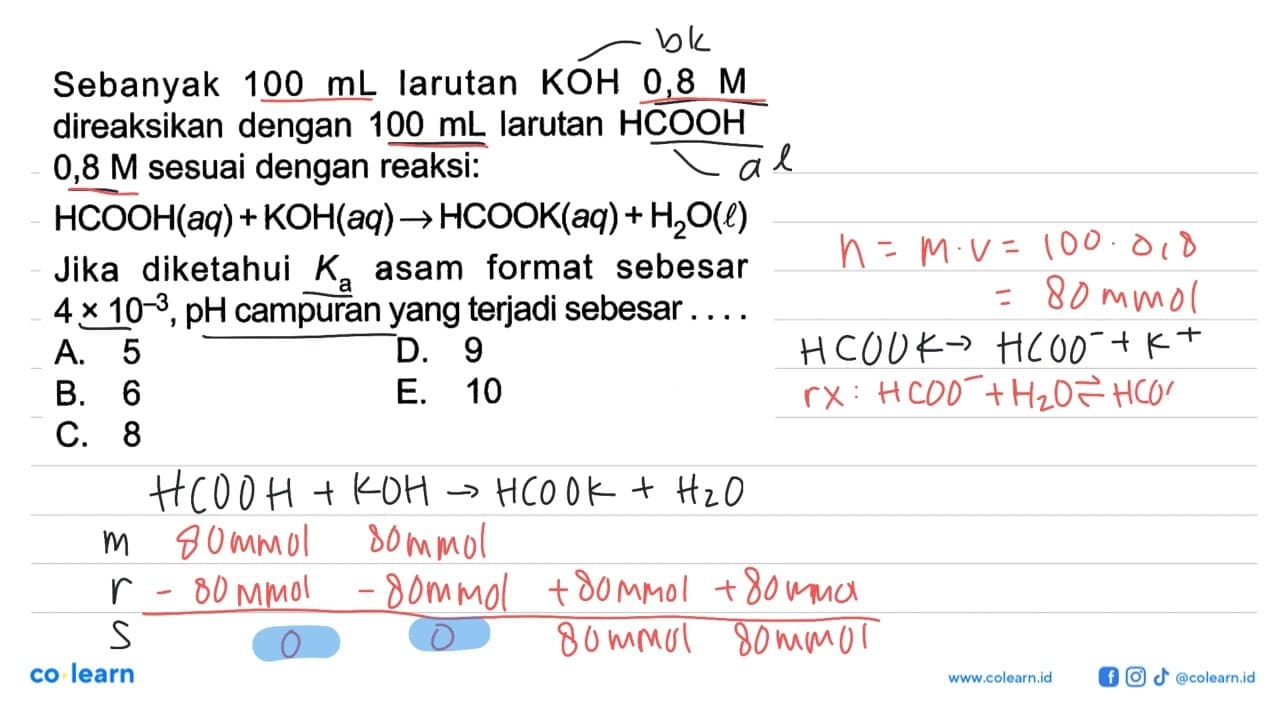 bk
Sebanyak 100 mL larutan KOH 0,8 M
direaksikan dengan 100 mL larutan HCOOH
al
0,8 M sesuai dengan reaksi:
HCOOH(aq) + KOH(aq) → HCOOK(aq) + H₂O(ℓ)
Jika diketahui Kₐ asam format sebesar
4 × 10⁻³, pH campuran yang terjadi sebesar . . . .
A. 5
D. 9
B. 6
E. 10
C. 8
n = M . V = 100 . 0,8
= 80 mmol
HCOOK → HCOO⁻ + K⁺
rx : HCOO⁻ + H₂O ⇌ HCO
HCOOH + KOH → HCOOK + H₂O
m 80 mmol 80 mmol
r - 80 mmol - 80 mmol + 80 mmol + 80 mmol
s 0 0 80 mmol 80 mmol
co learn
www.colearn.id
@colearn.id